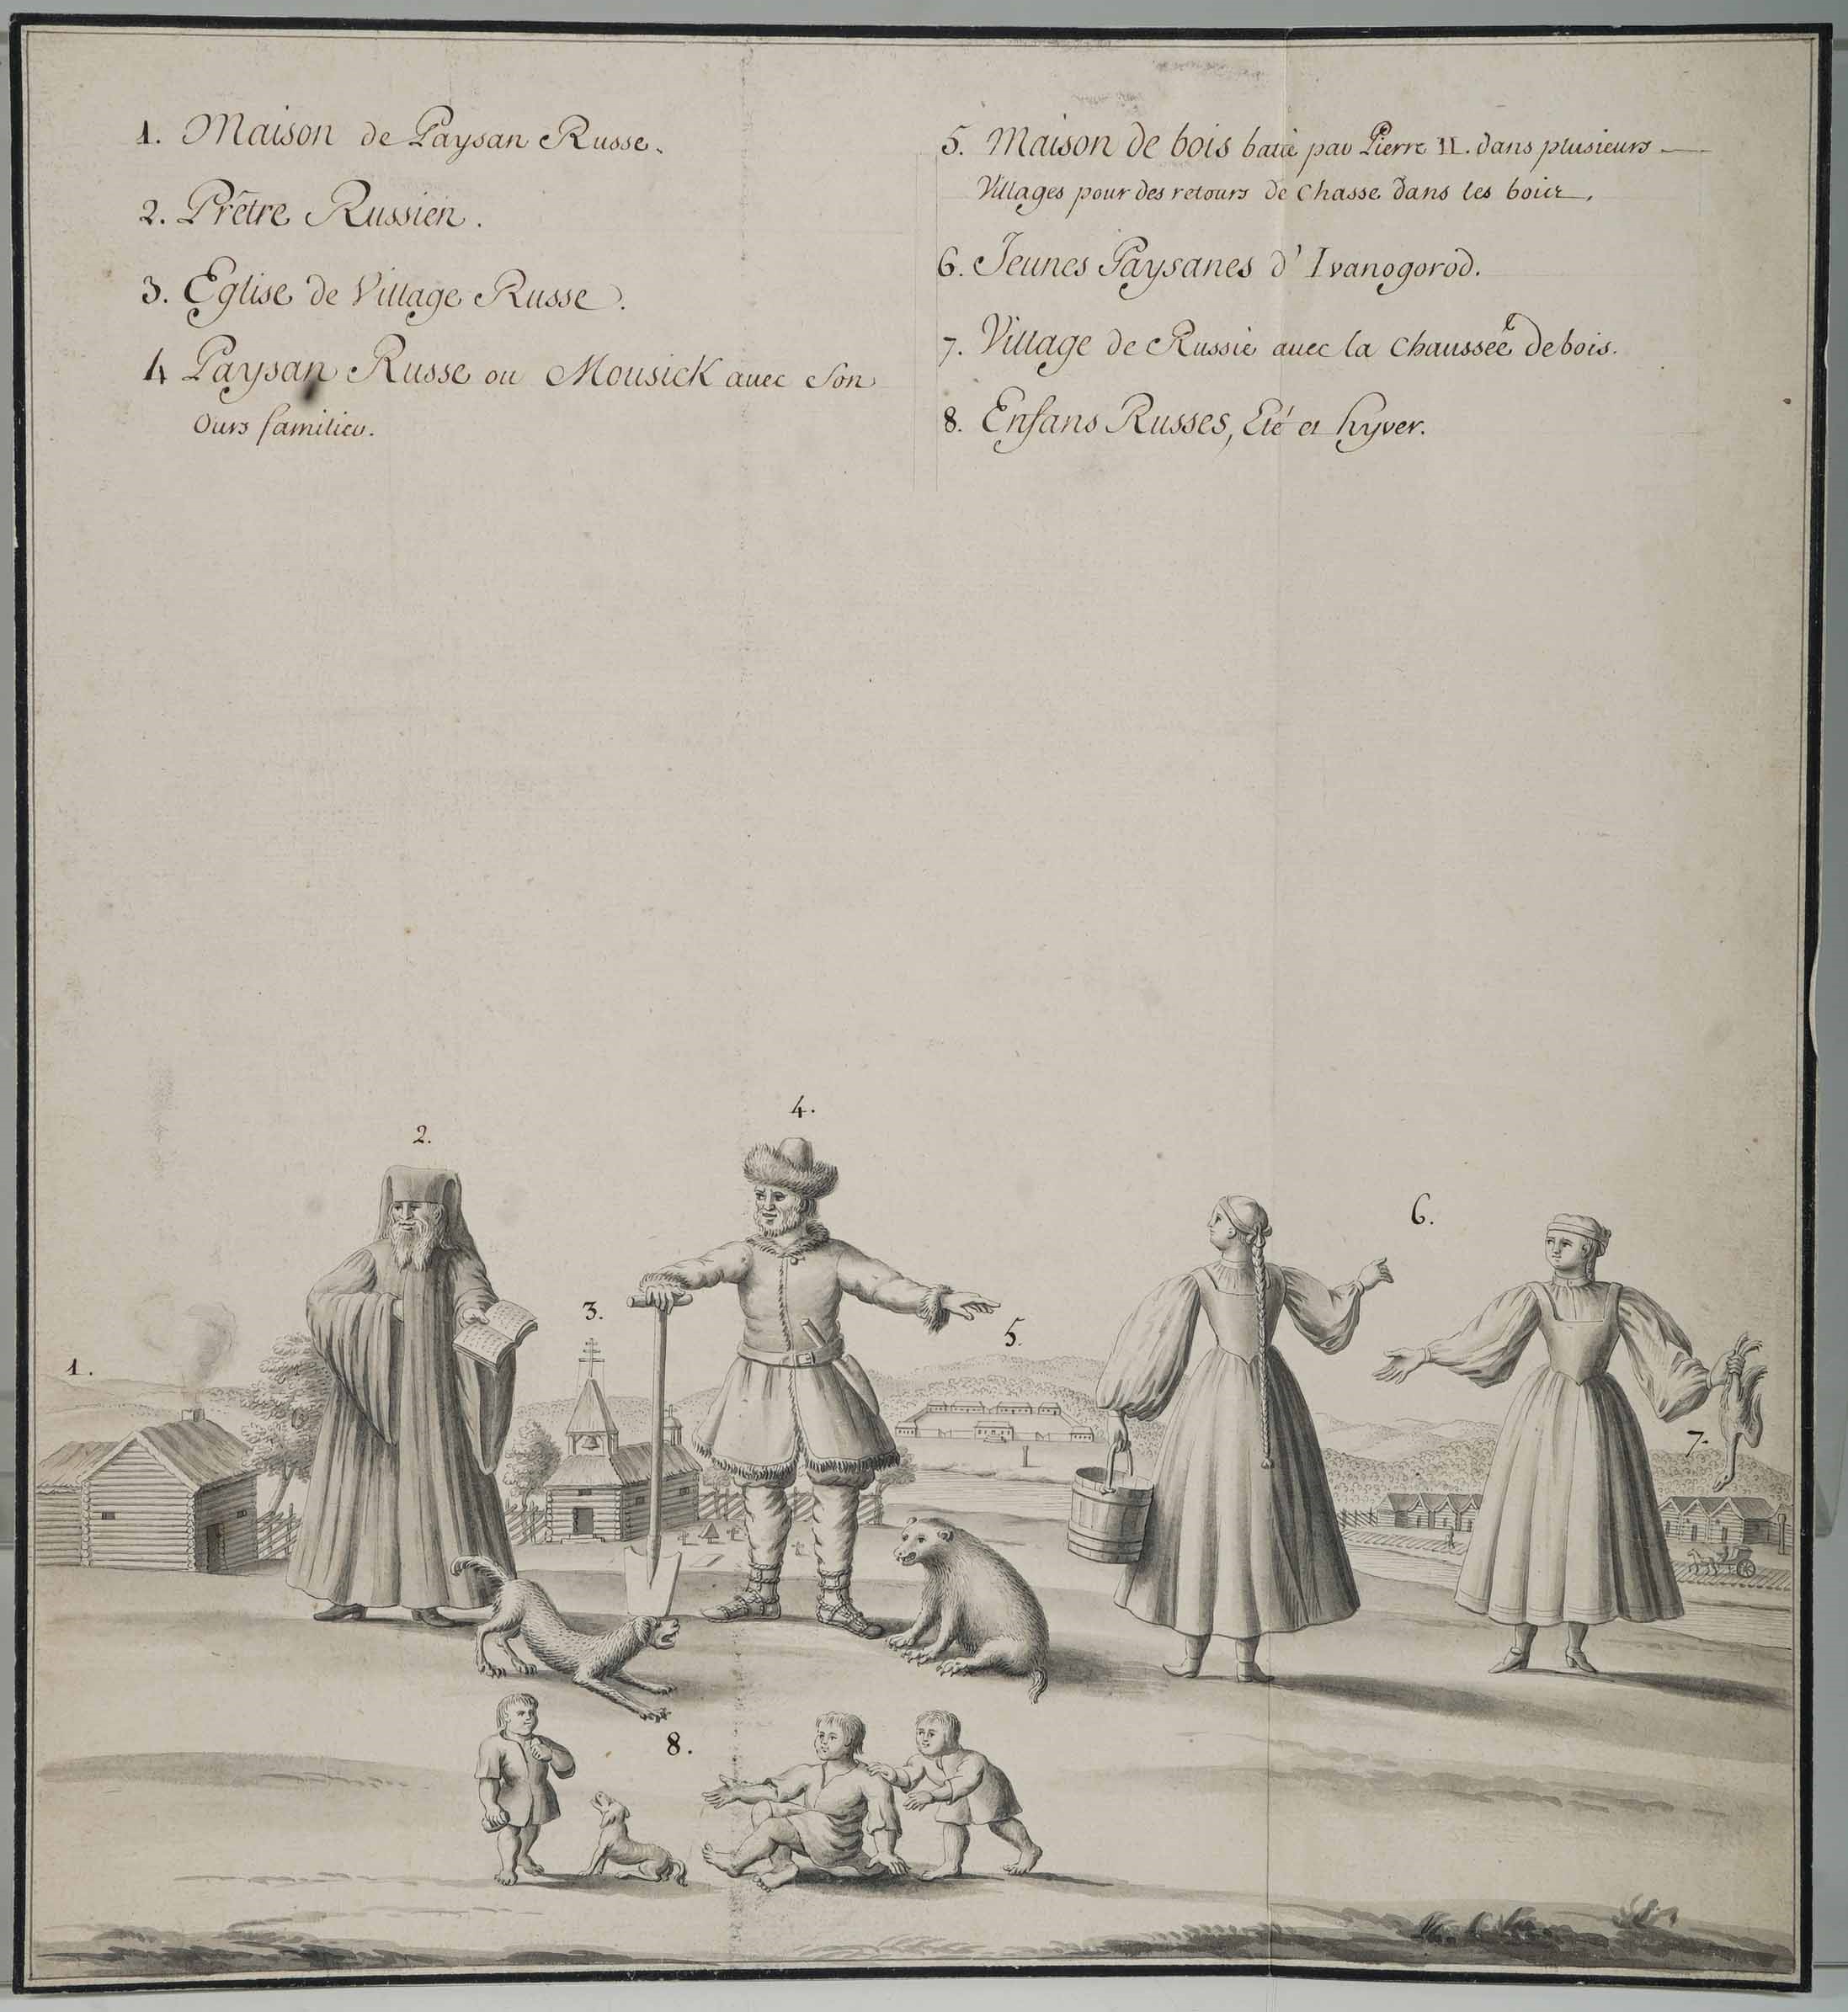 1. Maison de Paysan Russe.
2. Prêtre Russien.
3. Eglise de Village Russe.
4 Paysan Russe ou Mousick avec son
Ours familier.
5. Maison de bois batie par Pierre II. dans plusieurs
Villages pour des retours de Chasse dans les
6. Jeunes Paysanes d'Ivanogorod.
7. Village de Russie avec la Chaussée de bois.
8. Enfans Russes, Eté et hyver.
4.
2.
6.
3.
5.
1.
7.
8.